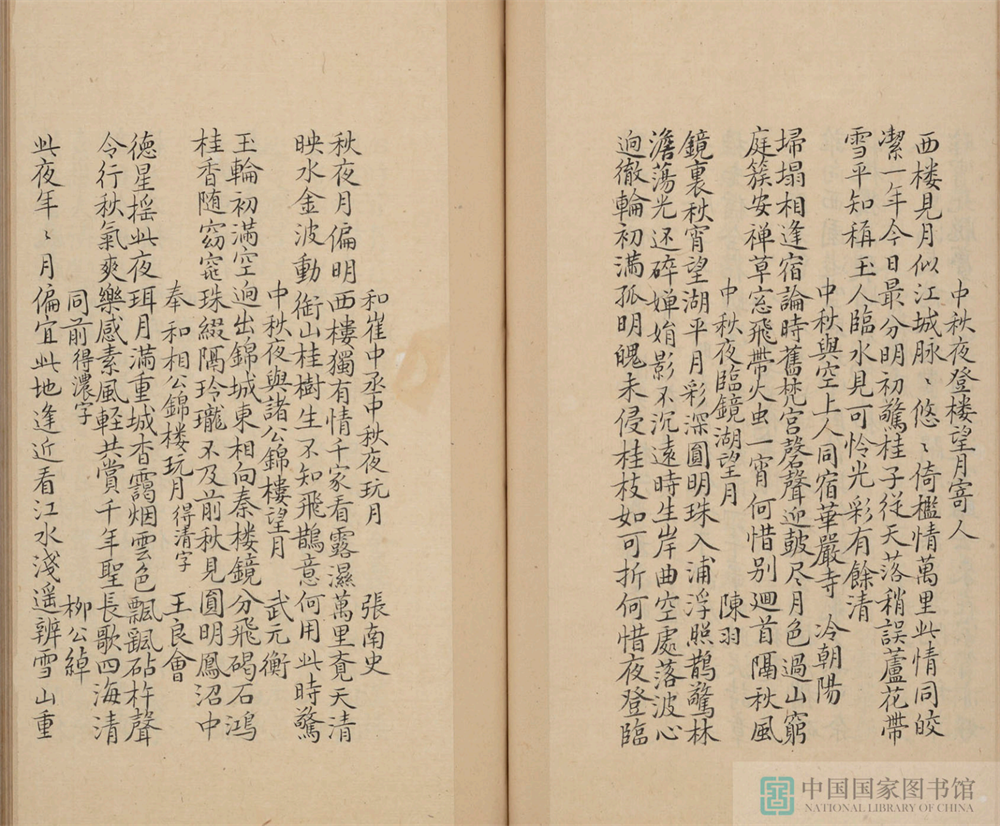 中秋夜登楼望月寄人
西楼見月似江城脉〻悠〻倚檻情萬里此情同皎
潔一年今日最分明初驚桂子從天落稍誤蘆花帶
雪平知稱玉人臨水見可怜光彩有餘清
中秋與空上人同宿華嚴寺 冷朝陽
埽塌相逢宿論時舊梵宫磬聲迎鼓尽月色過山窮
庭簇安禅草窓飛帶火虫一宵何惜别廻首隔秋風
中秋夜臨鏡湖望月 陳羽
鏡裏秋宵望湖平月彩深圓明珠入浦浮照鹊驚林
澹蕩光还碎嬋娟影不沉遠時生岸曲空處落波心
逈徹輪初滿孤明魄未侵桂枝如可折何惜夜登臨
和崔中丞中秋夜玩月 張南史
秋夜月偏明西樓獨有情千家看露濕萬里覔天清
映水金波動銜山桂樹生不知飛鵲意何用此時驚
中秋夜與諸公錦樓望月 武元衡
玉輪初滿空逈出錦城東相向秦楼鏡分飛碣石鴻
桂香随窈窕珠綴隔玲瓏不及前秋見圓明鳳沼中
奉和相公錦楼玩月得清字 王良會
德星揺此夜珥月滿重城杳靄烟雲色飄颻砧杵聲
令行秋氣爽樂感素風軽共賞千年聖長歌四海清
同前得濃字 柳公綽
此夜年〻月偏宜此地逢近看江水淺遥辨雪山重
中国国家图书馆
NATIONAL LIBRARY OF CHINA